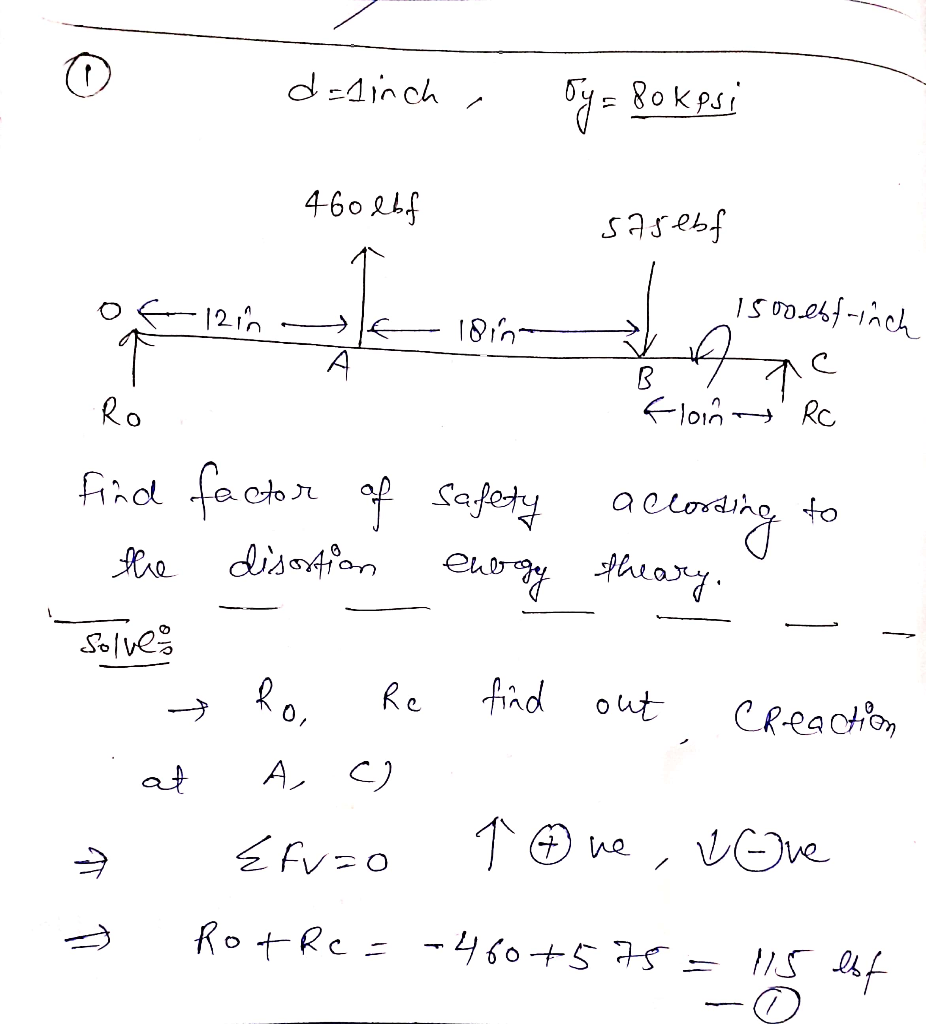 ①
d=1inch, σy = 80kpsi
460 lbf
575 lbf
O ← 12in → ← 18in → 1500lbf-inch
A B C
R0 ← 10in → RC
find factor of safety according to
the disortion energy theary.
Solve:
→ R0, Rc find out, (Reaction
at A, C)
⇒ ΣFv=0 ↑ ⊕ve, ↓⊖ve
⇒ R0 + Rc = -460+575 = 115 lbf
-①